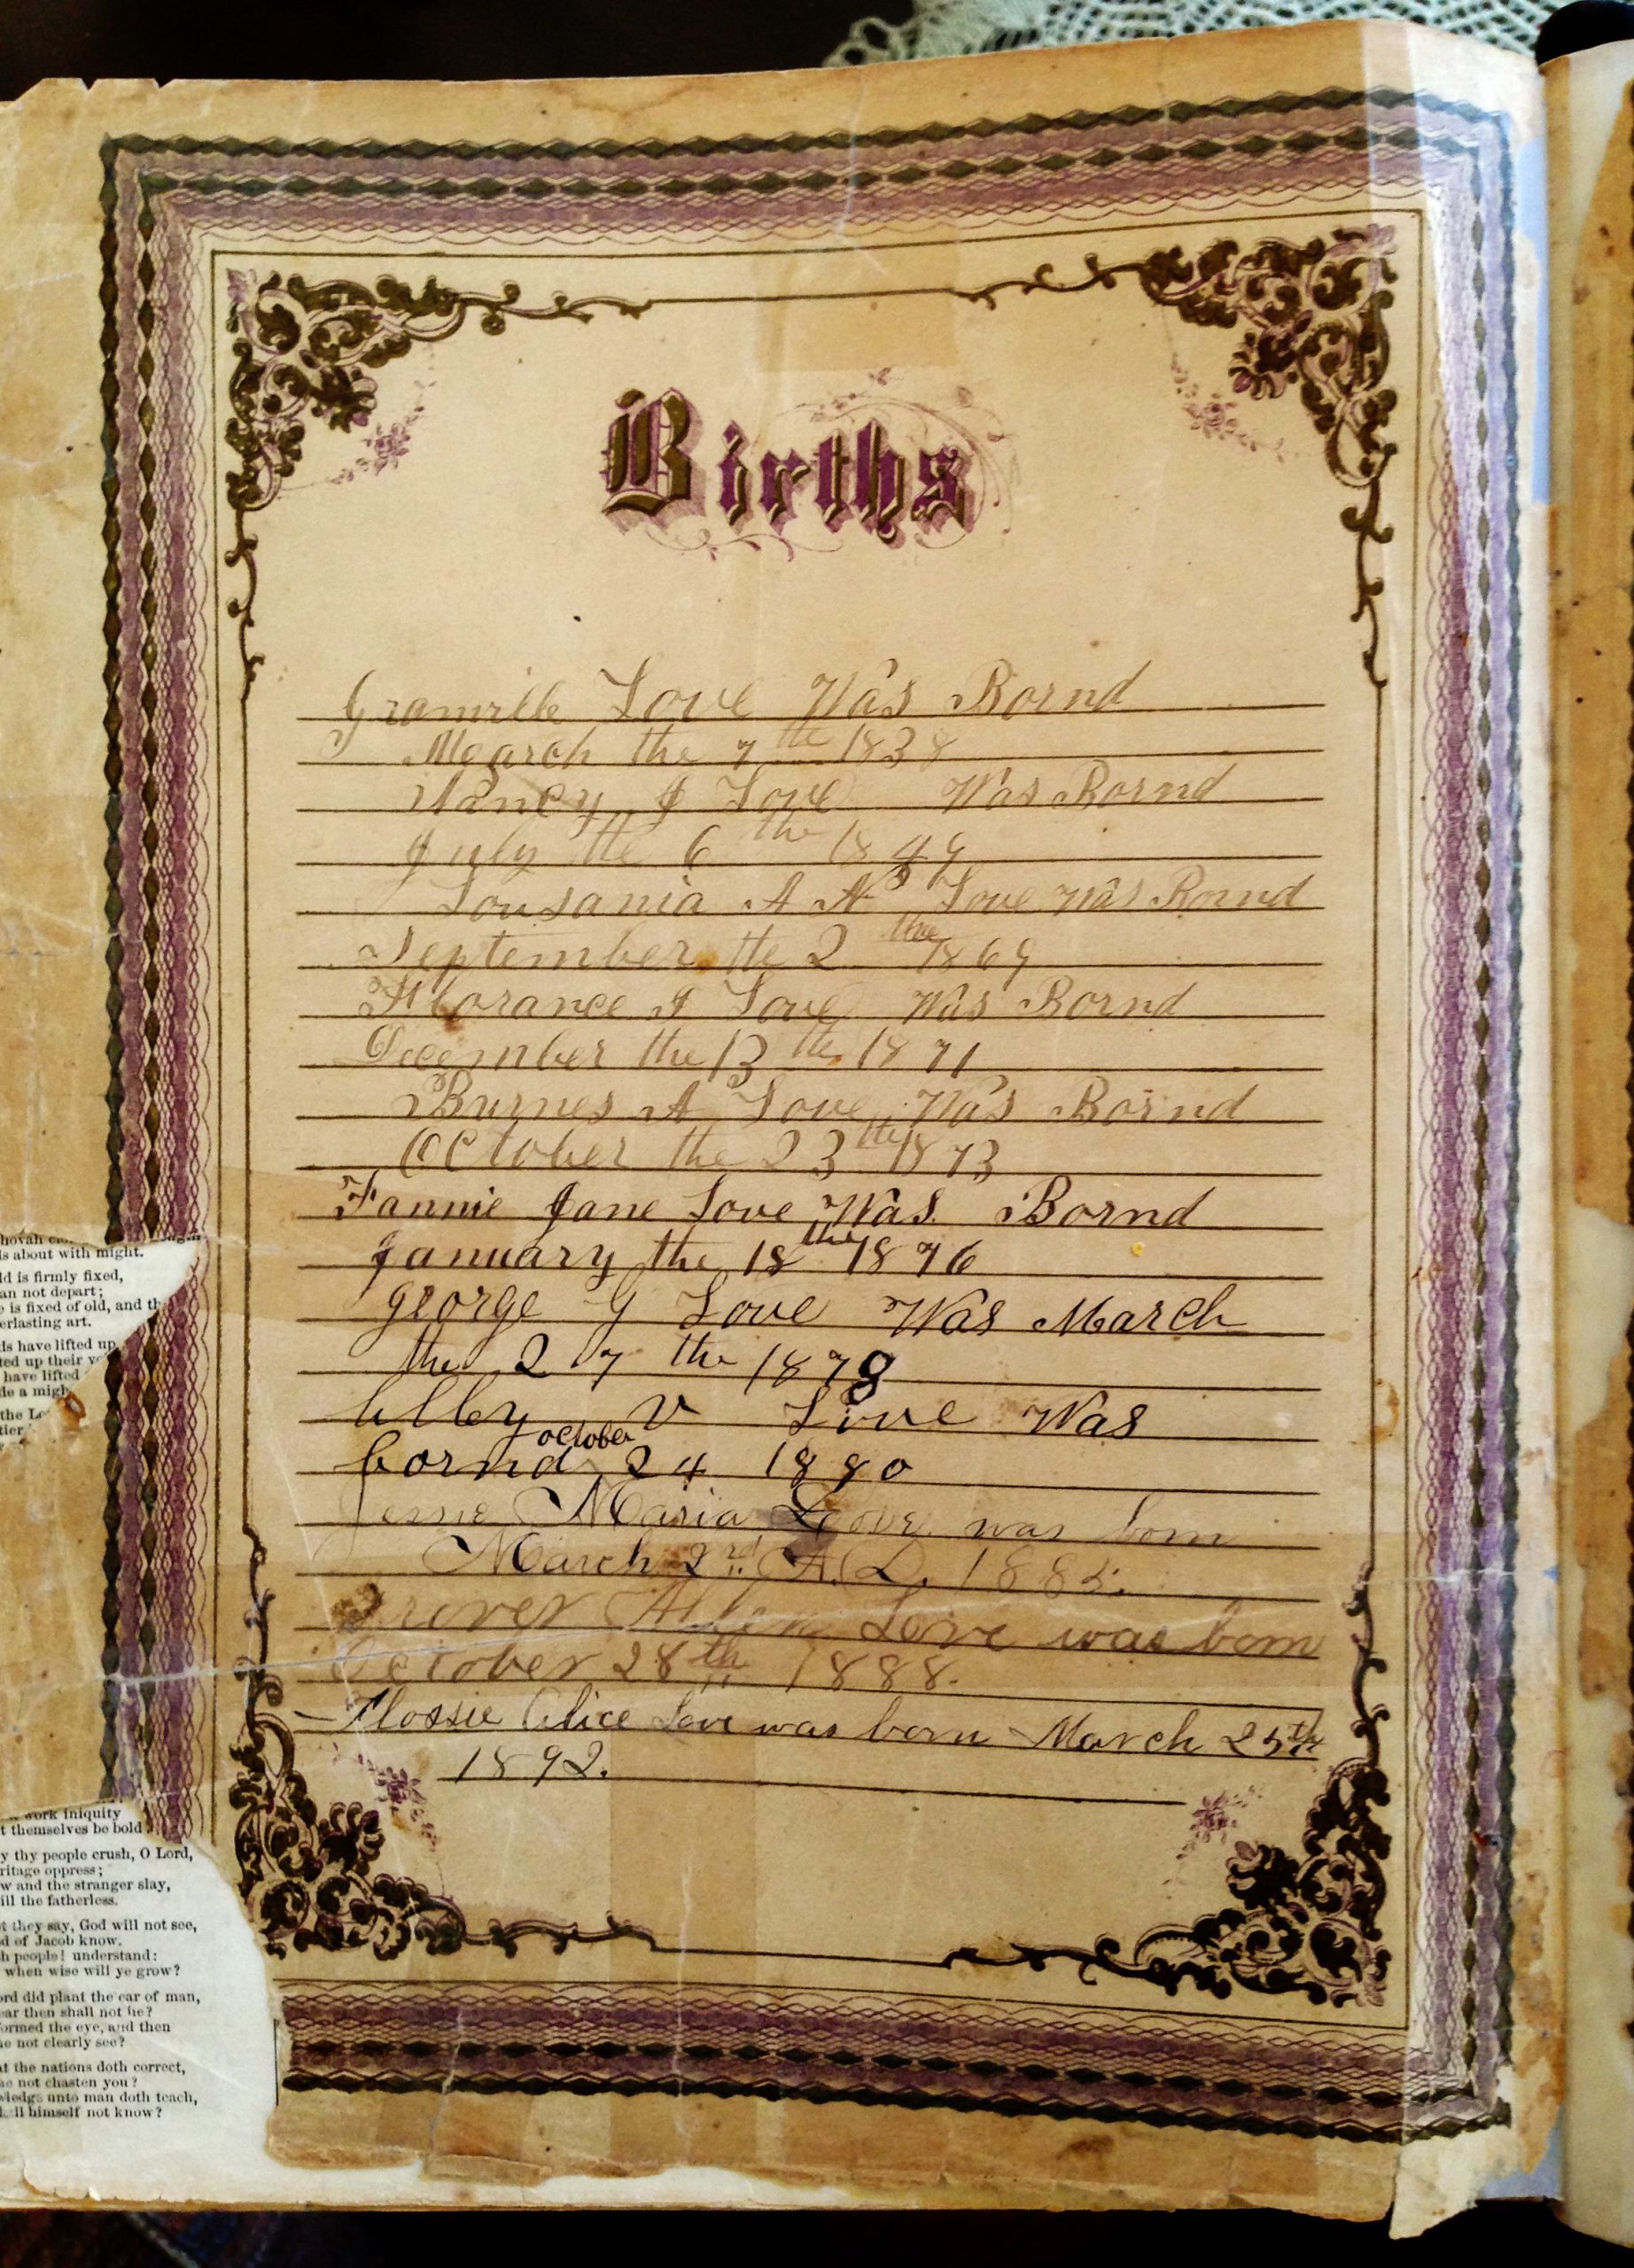 Births
Granville Love Was Bornd
March the 7 the 1838
Nancy J Love Was Bornd
July the 6 the 1849
Lousania A N Love Was Bornd
September the 2 the 1869
Florance I Love Was Bornd
December the 13 the 1871
Burnes A Love Was Bornd
October the 23 the 1873
Fannie Jane Love Was Bornd
January the 18 the 1876
George G Love Was March
the 27 the 1878
V Love Was
bornd october 24 1880
Maria Love was born
March 2nd A.D. 1885.
Grover Allen Love was born
October 28th 1888.
Flossie Alice Love was born March 25th
1892.
s about with might.
ld is firmly fixed,
an not depart;
e is fixed of old, and th
erlasting art.
ds have lifted up
ted up their
have lifted
de a migh
the Lo
tier
work iniquity
t themselves be bold
y thy people crush, O Lord,
ritage oppress;
w and the stranger slay,
ill the fatherless.
t they say, God will not see,
d of Jacob know.
h people! understand:
when wise will ye grow?
ord did plant the ear of man,
ear then shall not he?
formed the eye, and then
he not clearly see?
at the nations doth correct,
he not chasten you?
wledge unto man doth teach,
ll himself not know?